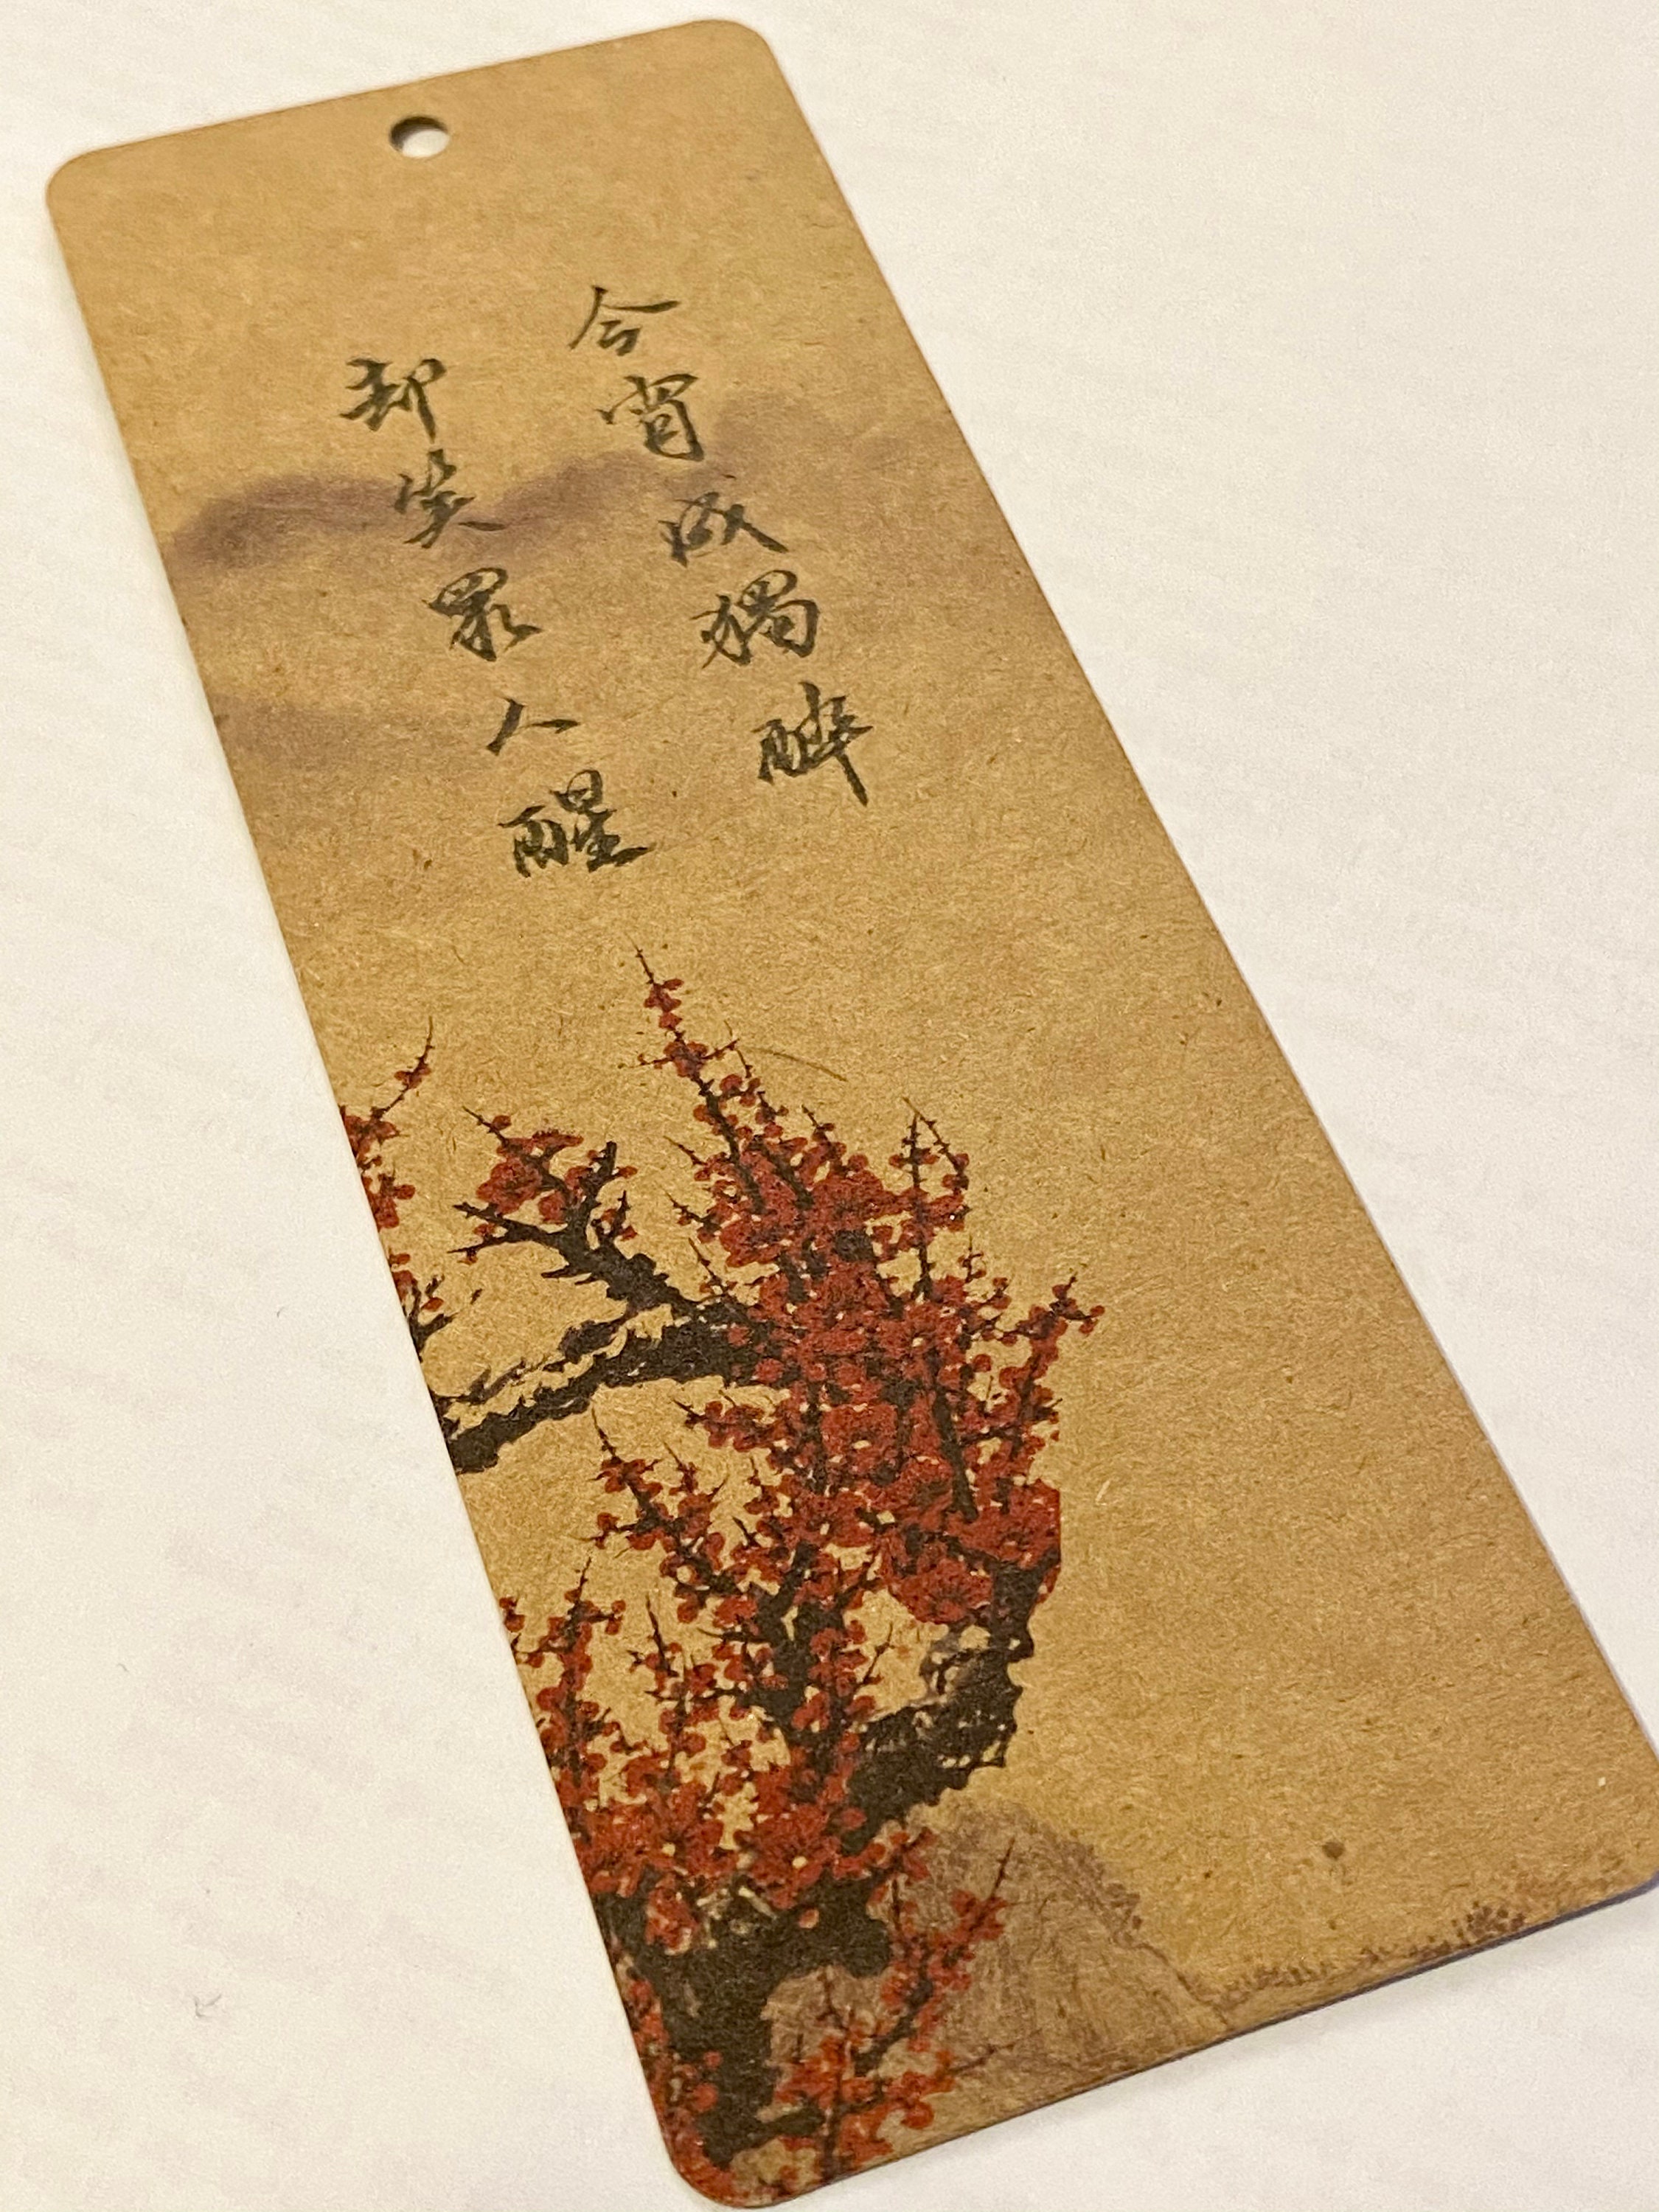 今宵成獨醉
却笑眾人醒